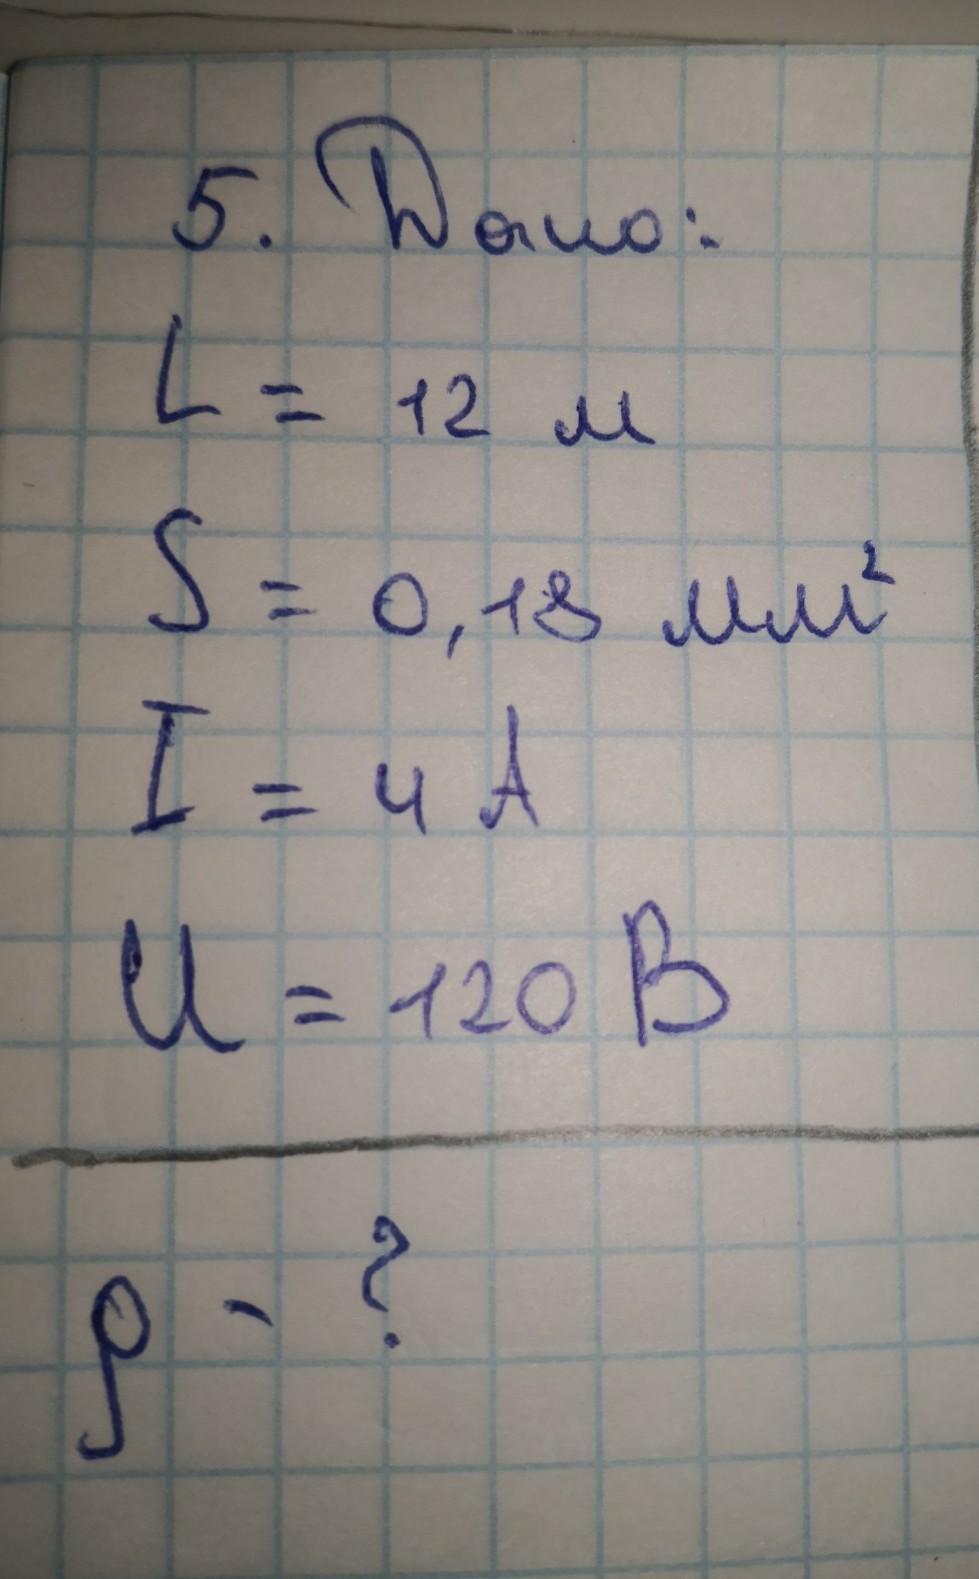 5. Дано:
L = 12 м
S = 0,18 мм²
I = 4 А
U = 120 В
ρ - ?